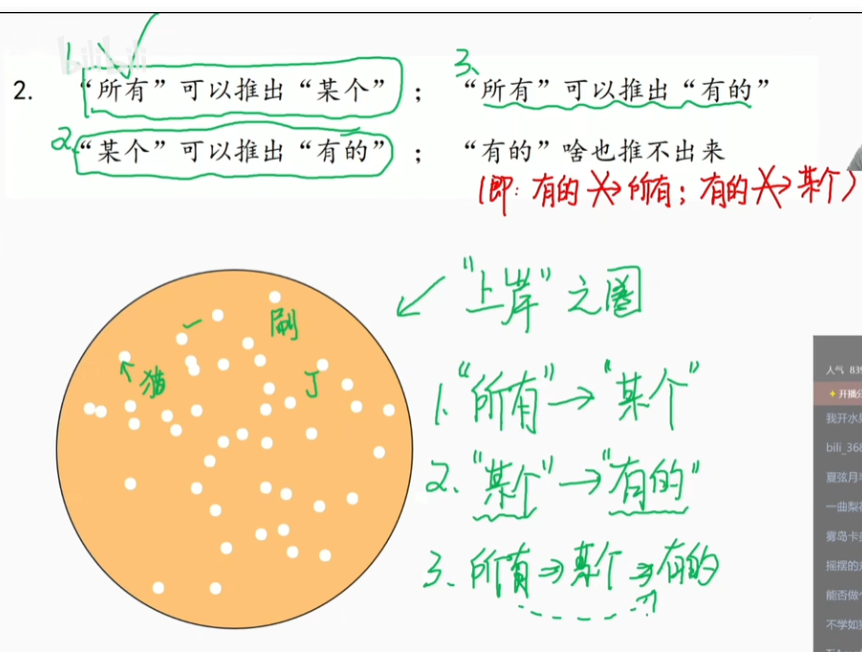 bilibili
1.
3.
2. “所有”可以推出“某个”； “所有”可以推出“有的”
2.
“某个”可以推出“有的”； “有的”啥也推不出来
(即: 有的 ↛ 所有; 有的 ↛ 某个)
“上岸”之圈
一
刷
猫
丁
1. “所有”→“某个”
2. “某个”→“有的”
3. 所有⇒某个⇒有的
人气 839
开播
我开水
bili_368
夏弦月
一曲梨
雾岛卡
摇摆的
能否做
不学如